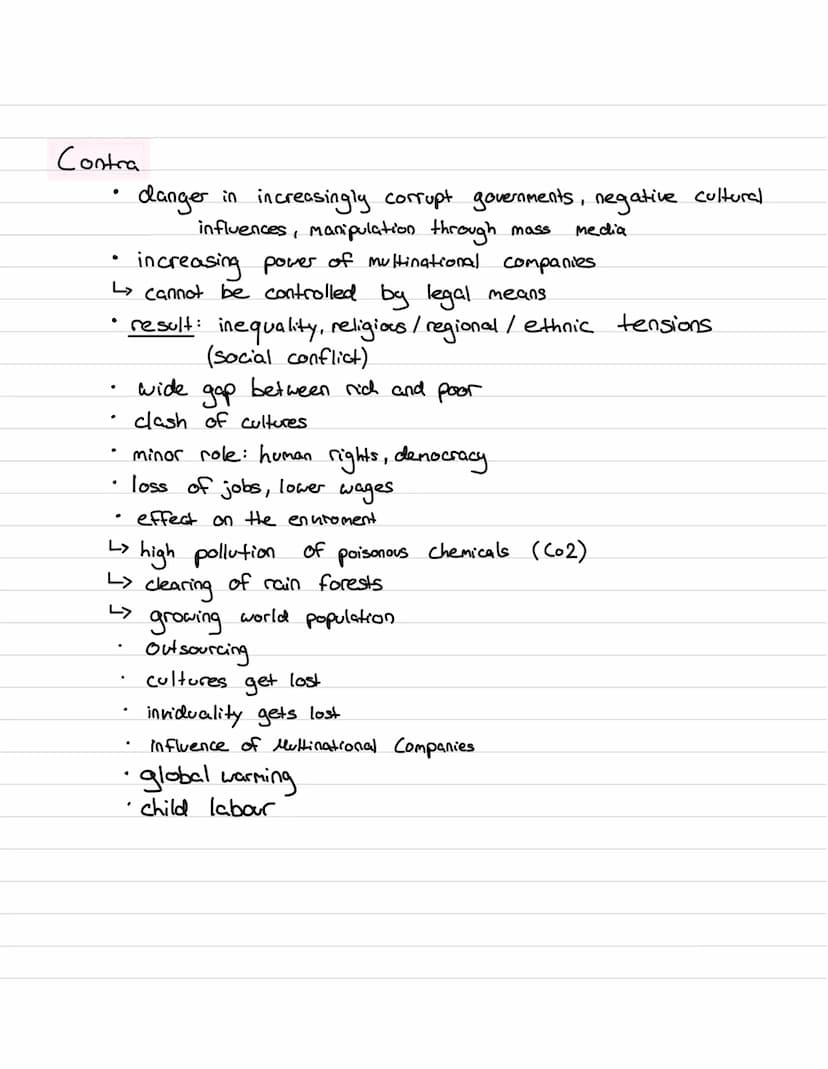 Contra
• danger in increasingly corrupt governments, negative cultural
influences, manipulation through mass media
• increasing power of multinational companies
↳ cannot be controlled by legal means
• result: inequality, religious / regional / ethnic tensions
(social conflict)
• wide gap between rich and poor
• clash of cultures
• minor role: human rights, democracy
• loss of jobs, lower wages
• effect on the enviroment
↳ high pollution of poisonous chemicals (Co2)
↳ clearing of rain forests
↳ growing world population
• Outsourcing
• cultures get lost
• inviduality gets lost
• Influence of Multinational Companies
• global warming
• child labour